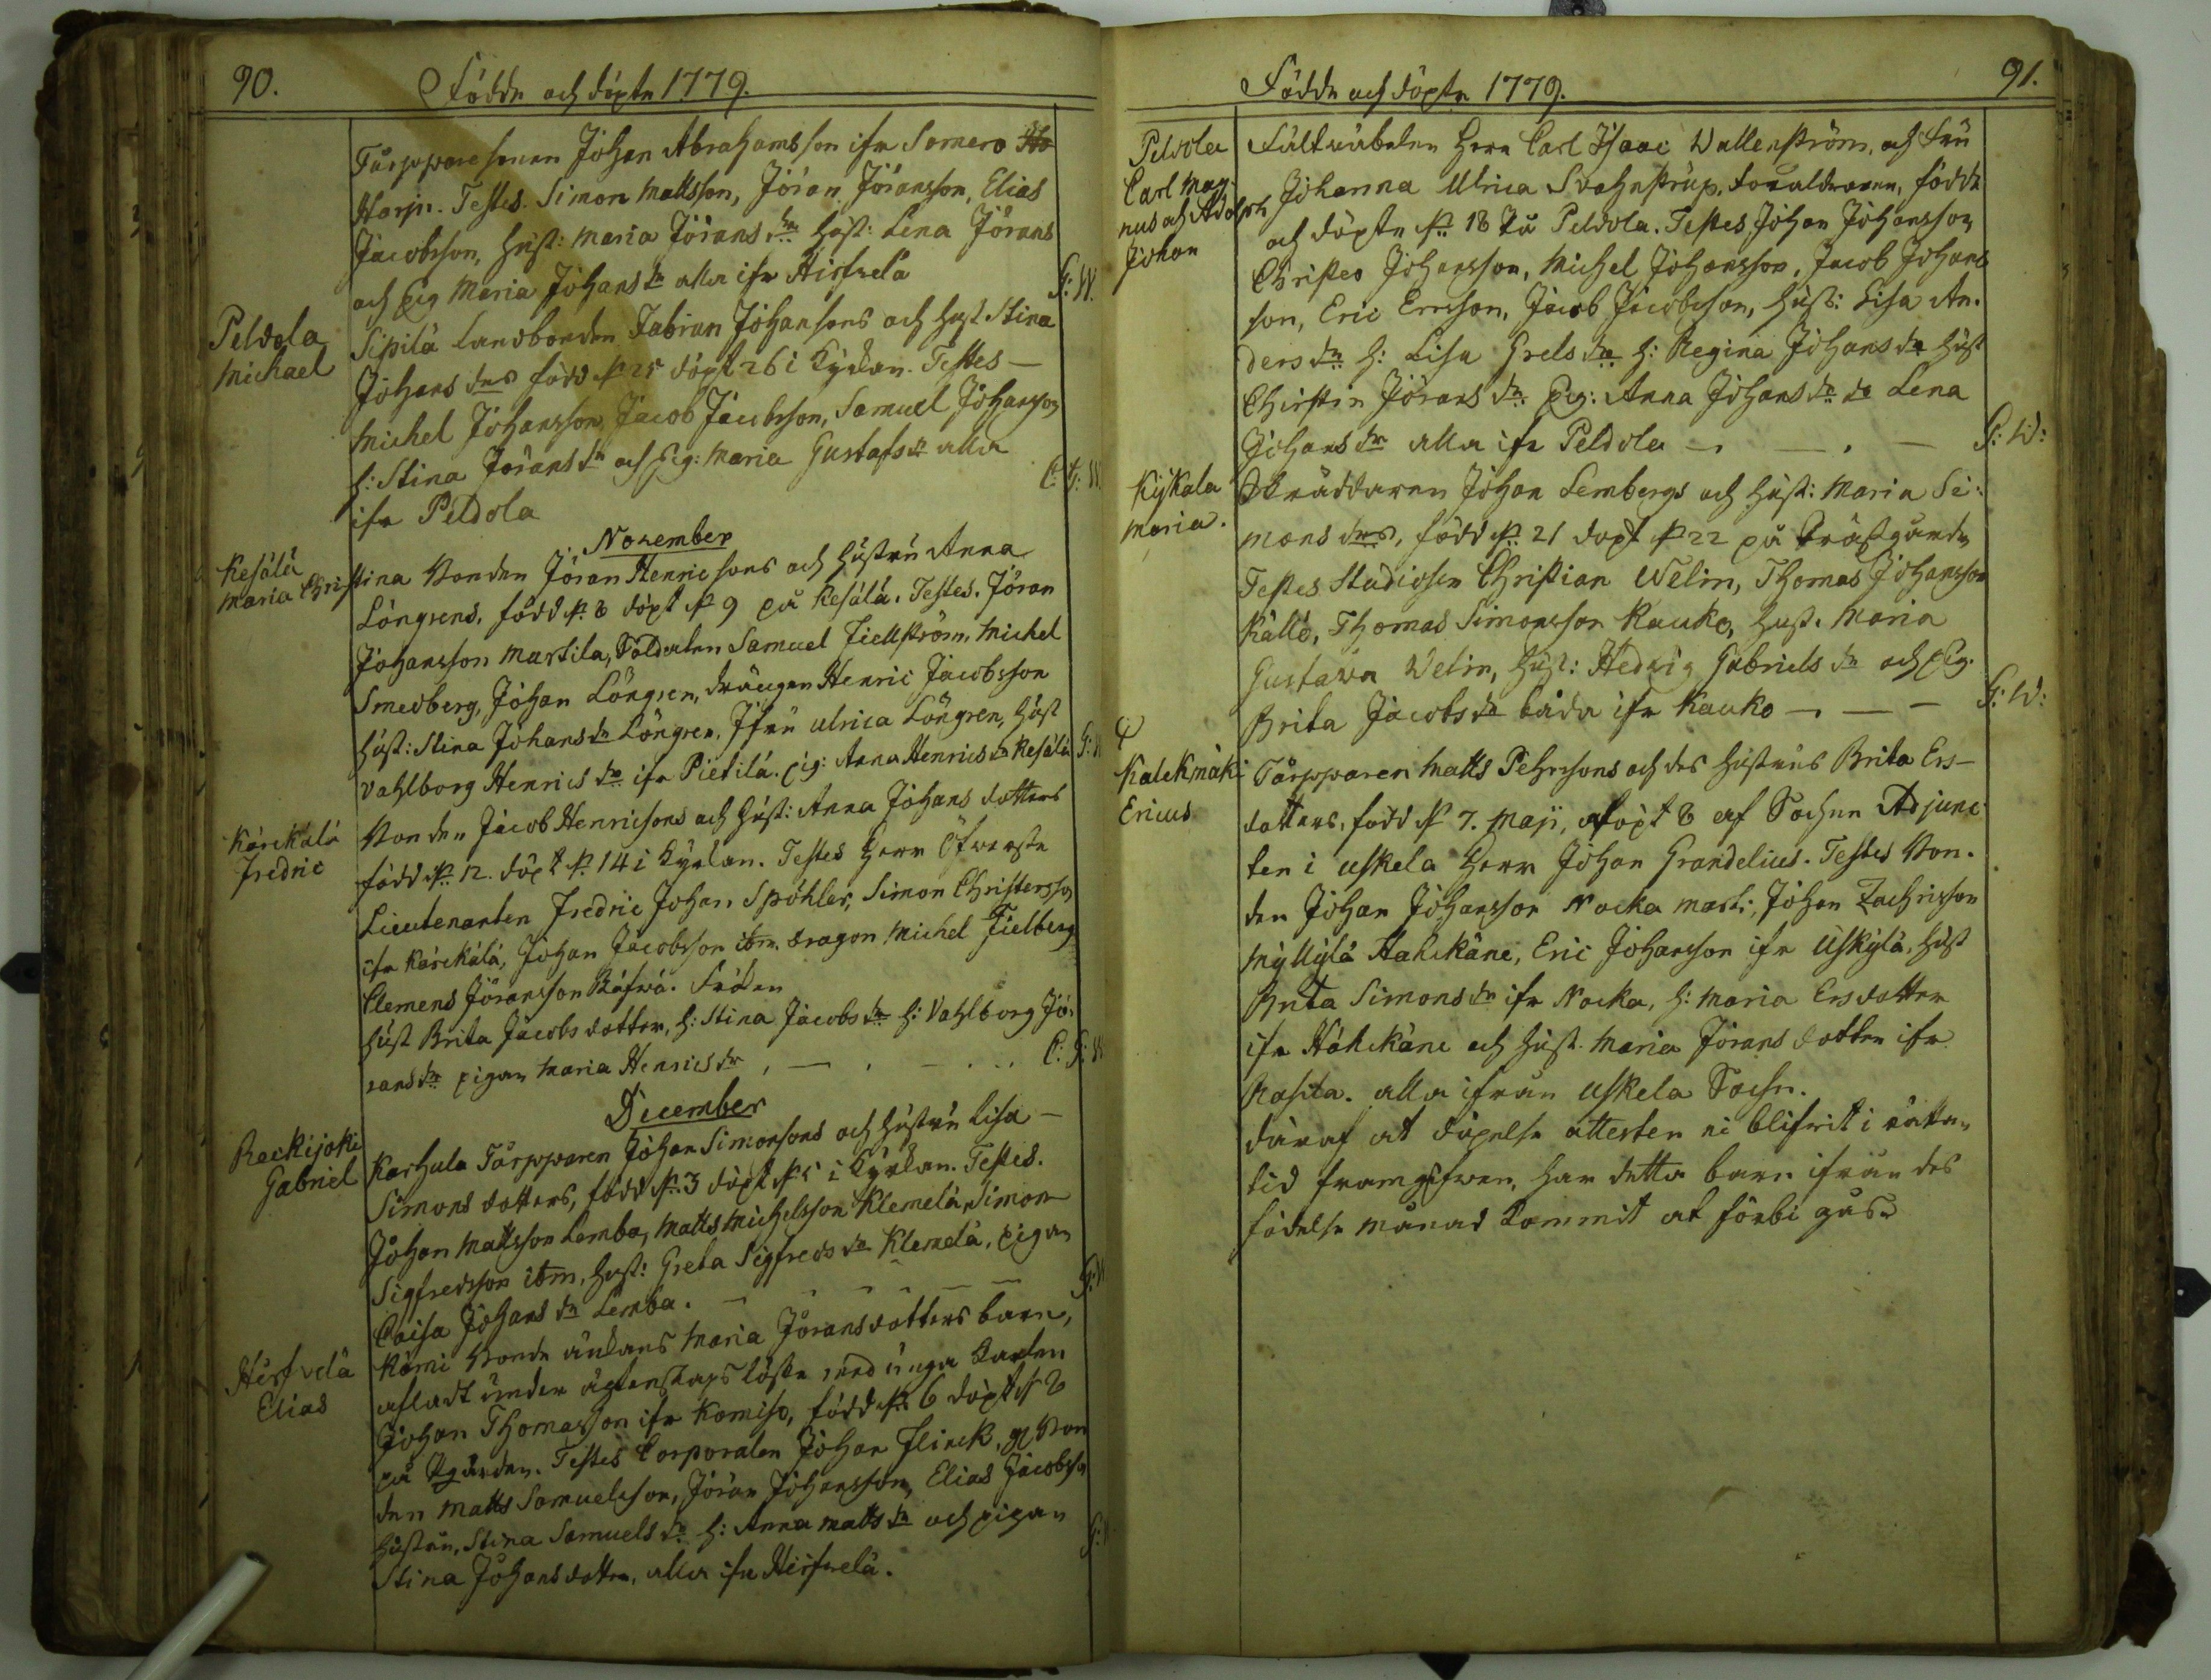 90.
Födde och döpte 1779.
Torpparesonen Johan Abrahamsson ifr Somero
Harju. Testes. Simon Mattsson, Jöran Jöransson, Elias
Jacobsson, hust: Maria Jörans dr hust: Lena Jörans
och Pig Maria Johans dr alla ifr Hirfvelä
G: W.
Peldola
Michael
Sipilä Landbonden Fabian Johansons och hust Stina
Johans drs född d 25 döpt 26 i Kyrkan. Testes
Michel Johansson, Jacob Jacobsson, Samuel Johansson
h: Stina Jörans dr och Pig: Maria Gustafs dr alla
ifr Peldola
C. G: W.
November
Kesälä
Maria Christina
Bonden Jöran Henricsons och hustru Anna
Löngrens, född d. 8 döpt d 9 på Kesälä. Testes. Jöran
Johansson Martila, Soldaten Samuel Fiellström, Michel
Smedberg, Johan Löngren, drängen Henric Jacobsson
hust: Stina Johans dr Löngren, Jfru Ulrica Löngren, hust
Vahlborg Henrics dr ifr Pietilä. pig: Anna Henrics dr Kesälä
G: W
Kärckälä
Fredric
Bonden Jacob Henricsons och hust: Anna Johans dotters
född d. 12. döpt d. 14 i Kyrkan. Testes Herr Öfwerste
Lieutenanten Fredric Johan Spöhler, Simon Christersson
ifr Kärckälä, Johan Jacobsson ibm. dragon Michel Fielberg
Clemens Jöransson
hust Brita Jacobs dotter, h: Stina Jacobs dr h: Vahlborg Jö-
rans dr pigan Maria Henrics dr
C. G: W
December
Reckijoki
Gabriel
Karhula Torpparen Johan Simonsons och hustru Lisa
Simons dotters, född d. 3 döpt d 5 i Kyrkan. Testes.
Johan Mattsson Lemba, Matts Michelsson Klemelä, Simon
Sigfredsson ibm, hust: Greta Sigfreds dr Klemelä, pigan
Caisa Johans dr Lemba.
G: W
Hirfvelä
Elias
Römi Bonde änkans Maria Jöransdotters barn,
afladt under ägtenskaps löfte med unga Karlen
Johan Thomasson ifr Komiso, född d. 6 döpt d 8
på Pgården. Testes Corporalen Johan Flinck, Bon
den Matts Samuelsson, Jöran Johansson, Elias Jacobsson
hustru, Stina Samuels dr h: Anna Matts dr och pigan
Stina Johans dotter, alla ifr Hirfvelä.
G: W
Födde och döpte 1779.
91.
Peldola
Carl Mag-
nus och Adolph
Johan
Fältväbelen Herr Carl Isaac Wallenström, och Fru
Johanna Ulrica Svahnström, föräldrarne, födde
och döpte d. 18 på Peldola. Testes Johan Johansson
Christer Johansson, Michel Johansson, Jacob Johans
son, Eric Ersson, Jacob Jacobsson, hust: Lisa An-
ders dr h: Lisa Grels dr h: Regina Johans dr hust
Christin Jörans dr Pig: Anna Johans dr do Lena
Johans dr alla ifr Peldola
G: W:
Kijkala
Maria.
Skräddaren Johan Lembergs och hust: Maria Si-
mons drs, född d. 21 döpt d 22 på Prästgården
Testes Studiosen Christian Welin, Thomas Johansson
Källö, Thomas Simonsson Kauko, hust. Maria
Gustava Welin, hust: Hedvig Gabriels dr och Pig.
Brita Jacobs dr båda ifr Kauko
G: W:
Kalckmäki
Ericus
Torpparen Matts Pehrsons och des hustrus Brita Ers-
dotters, född d 7. Maji, döpt 8 af Sochne Adjunc
ten i Uskela Herr Johan Grandelius. Testes Bon-
den Johan Johansson Nocka Mart:, Johan Zachrisson
Myllylä Hahkäne, Eric Johansson ifr Uskylä, hust
Brita Simons dr ifr Nocka, h: Maria Ersdotter
ifr Hähkäne och hust. Maria Jörans dotter ifr
Rasila. alla ifrån Uskela Sochn.
däraf at döpelse attesten ei blifwit i rättan
tid framgifwen, har detta barn ifrån des
födelse månad kommit at förbi gås